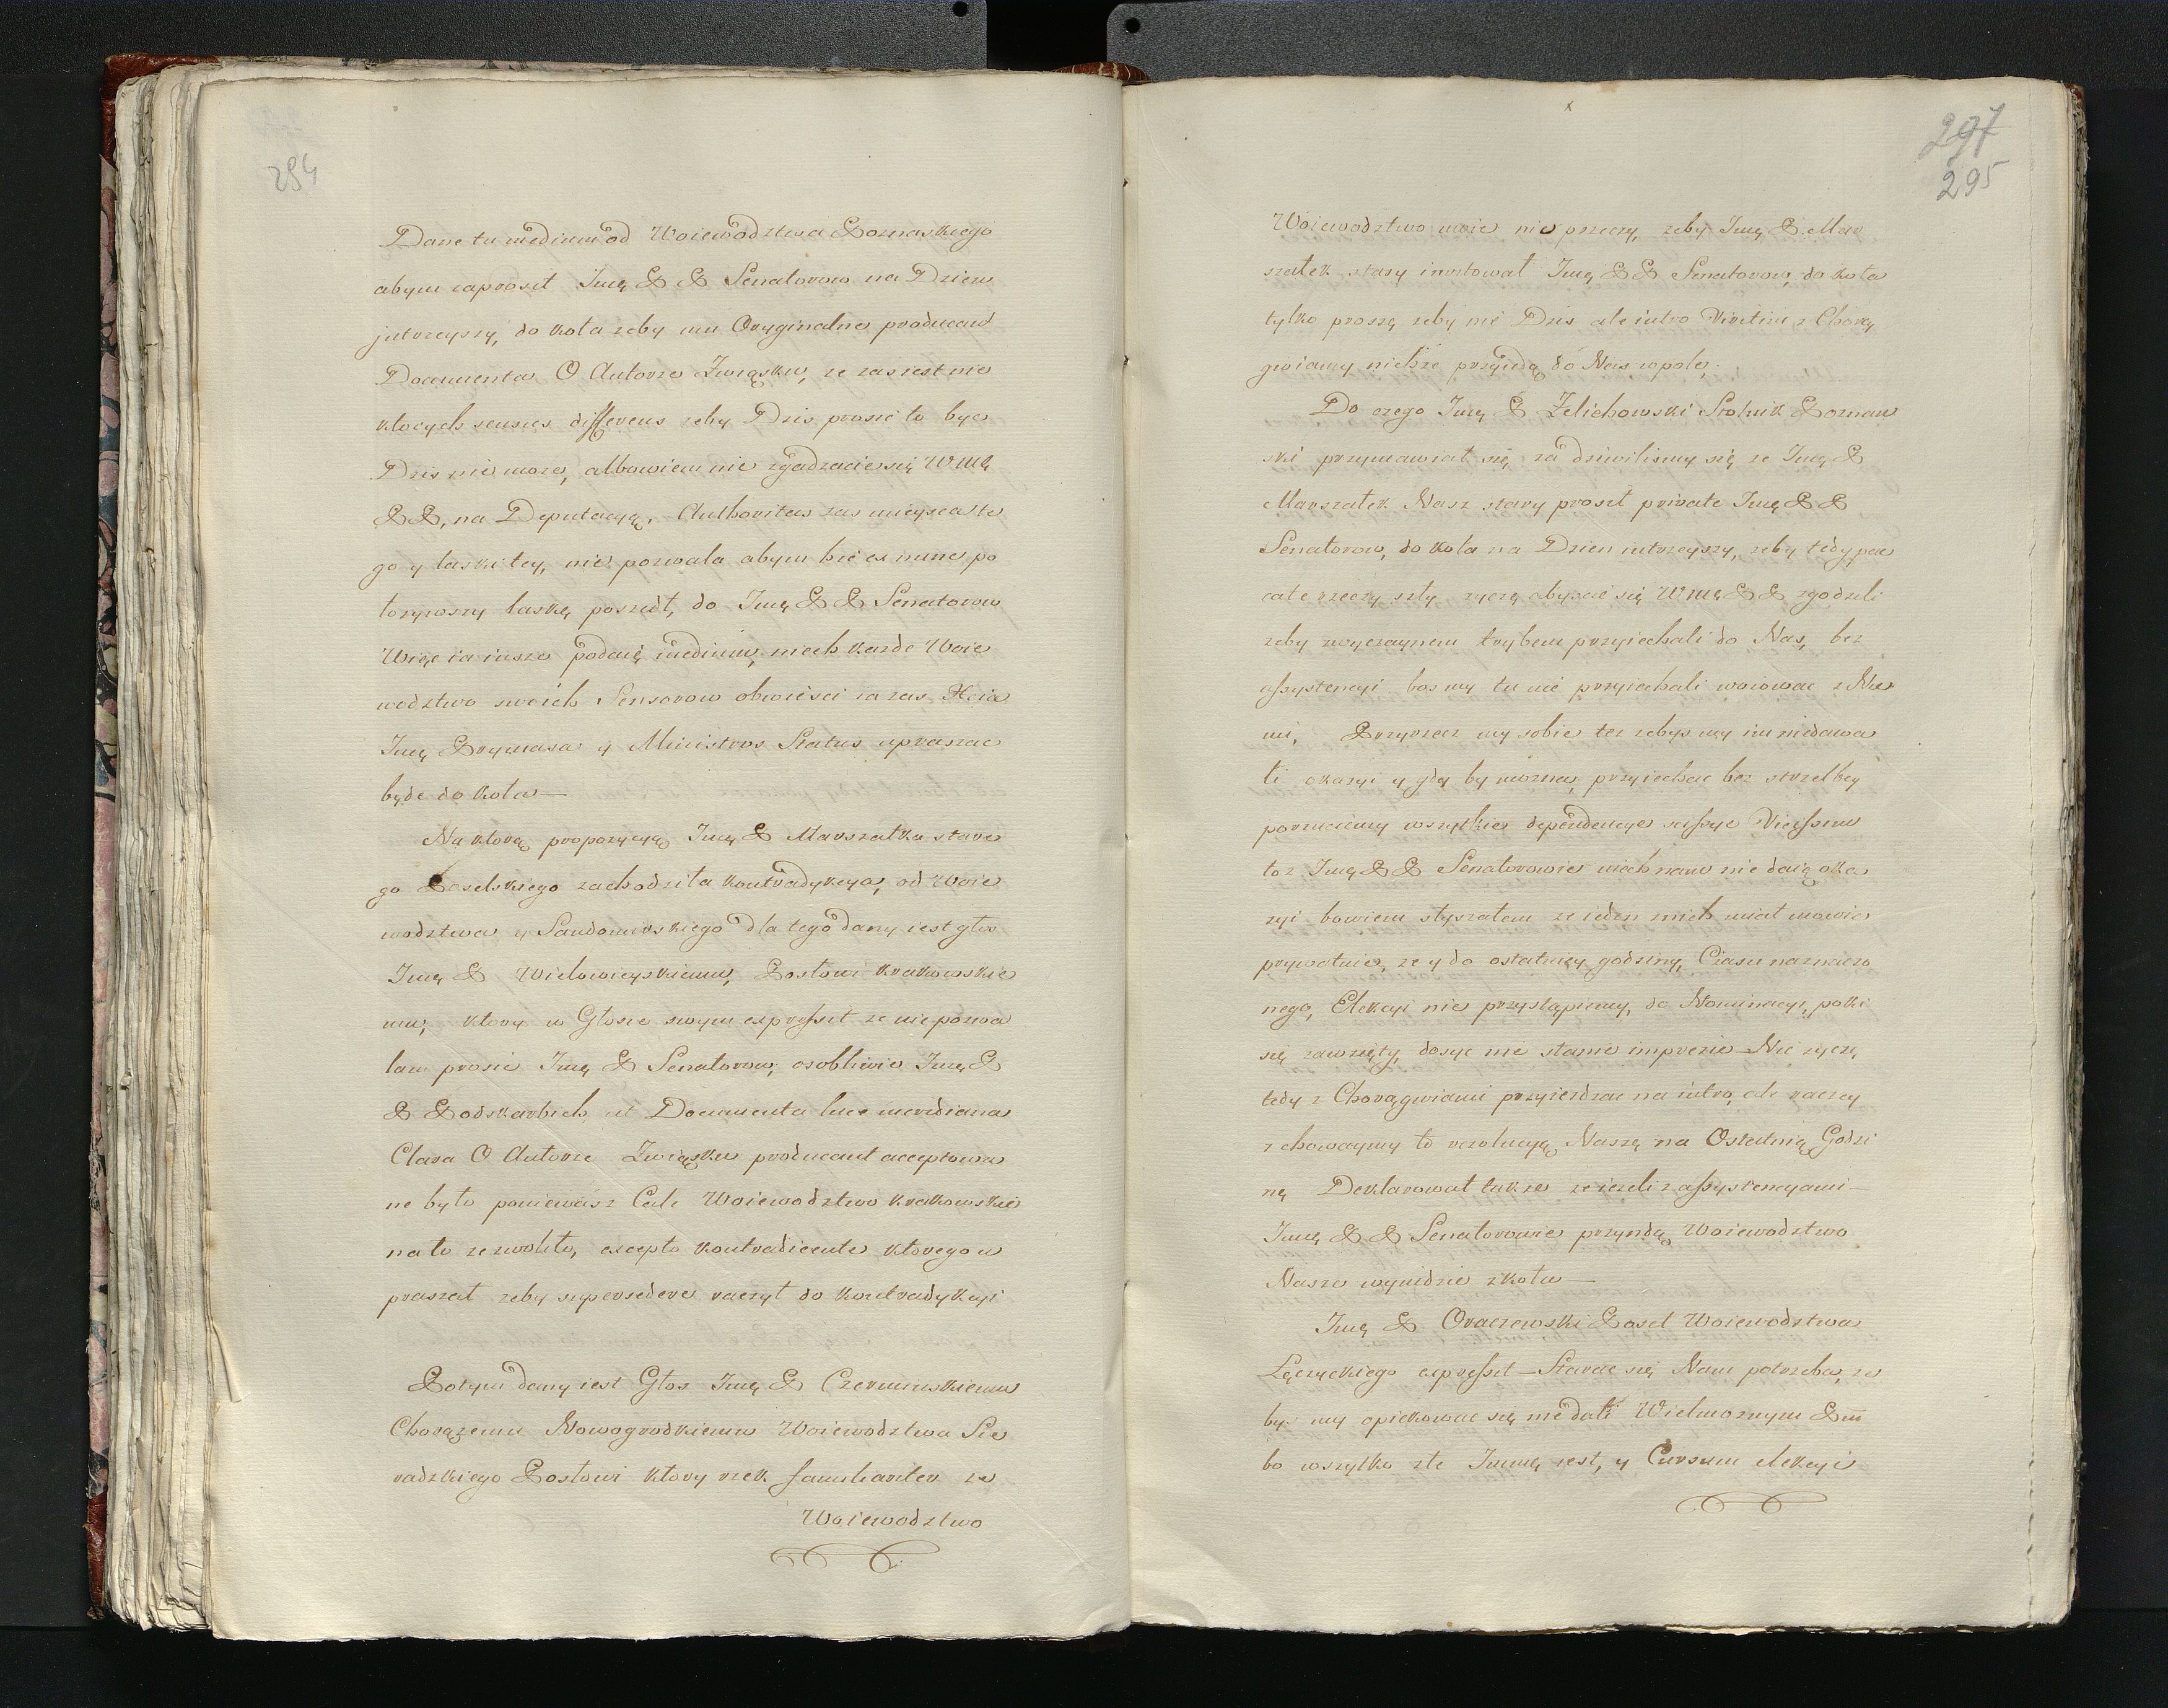 294
Dane tu medium od Woiewodztwa Poznaskiego
abym zaprosit Jmę P P Senatorow na Dzien
jutrzeyszy, do kola zeby nm Oryginalne producant
Documenta O Autorze Zwiąsku, ze zas iest nie
ktorych sensus differens zeby Dzis prosic to byc
Dzis nie moze, albowiem nie zgadzacie się WMę
P P, na Deputacyą, Authoritas zas mieysca te
go y laski tey, nie pozwala abym hic ex nunc po
lozywszy laskę poszedt, do Jmę P P Senatorow
Więc ia insze podaię medium, niech kazde Woie
wodztwo swoich Sensorow obwiesci ia zas Xcia
Jmę Prymasa y Ministros Status upraszac
będe do kola —
Na ktorą propozycyą Jmę P Marszałka stare
go Poselskiego zachodzila kontradykcya, od Woie
wodztwa y Sandomirskiego dla tego dany iest glos
Jmę P Wielowieyskiemu, Poslowi krakowskie
mu, ktory w Glosie swym expressit ze nie pozwa
lam prosic Jmę P Senatorow, osobliwie Jmę P
P Podskarbich ut Documenta luce meridiana
Clara O Autorze Zwiąsku producant acceptowa
ne było poniewasz Cale Woiewodztwo krakowskie
na to zezwolito, excepto kontradicente ktorego u
praszat zeby supersedere raczyt do kontradykcyi
Potym dany iest Głos Jmę P Czerminskiemu
Chorązemu Nowogrodkiemu Woiewodztwa Sie
radzkiego Poslowi ktory rzek familiariter ze
Woiewodztwo
297
295
Woiewodztwo moie nie przeczy, zeby Jmę P. Mar
szałek stary inwitowat Jmę P P Senatorow, do kola
tylko proszę zeby nie Dzis ale iutro Viritim z Chorą
gwiamy niehze przyiedą do Nas w pole,
Do czego Jmę P Zelichowski Stolnik Poznan
ski przymawiat się za dziwilismy się ze Jmę P
Marszałek Nasz stary prosit private Jmę P P
Senatorow, do kola na Dzien iutrzeyszy, zeby tedy pa
cate rzeczy szły zyczę abyscie się WMę P P zgodzili
zeby zwyczaynem trybem przyiechali do Nas, bez
assystencyi bosmy tu nie przyiechali woiowac z Nie
mi, Przyrzecz my sobie tez zebysmy im niedawa
li okazyi y gdy by mozna, przyiechac bez strzelby
porzuciemy wszytkie dependencye scissye Vicissim
toz Jmę P P Senatorowie niech nam nie daią oka
zyi bowiem slyszatem ze ieden znich miat mowic
prywatnie, ze y do ostatniey godziny, Czasu naznaczo
nego, Elekcyi nie przystąpiemy, do Nominacyi, poki
się zawzięty, dosyc nie stanie imprezie — Nie zyczę
tedy z Chorągwiami przyiezdzac na iutro, ale raczey
zchowaymy to rezolucyą Naszą na Ostatnią Godzi
nę Deklarowat takze ze iezeli z assystencyami —
Jmę P P Senatorowie przyndą Woiewodztwo
Nasze wynidzie z kola —
Jmę P Oraczewski Poset Woiewodztwa
Łęczyckiego expressit — Starac się Nam potrzeba, ze
bys my opiekowac się niedali Wielmoznym Pm̄
bo wszytko złe Jmmę iest, y Cursum elekcyi